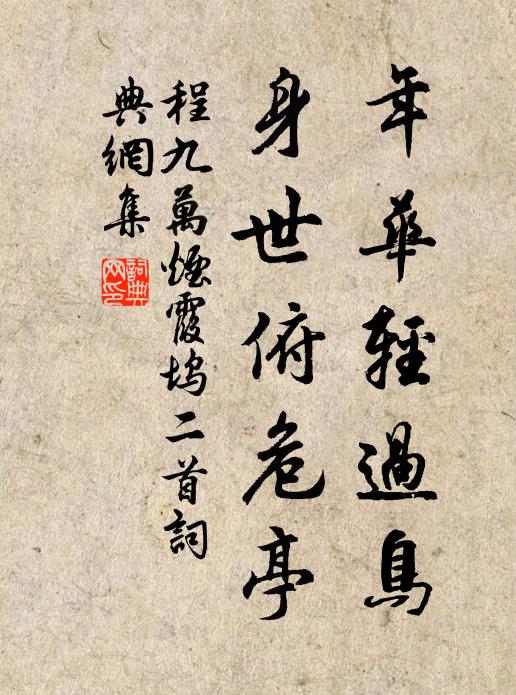 年華輕過鳥
身世俯危亭
程九萬煙霞塢二首詞
典網集
詞典網印